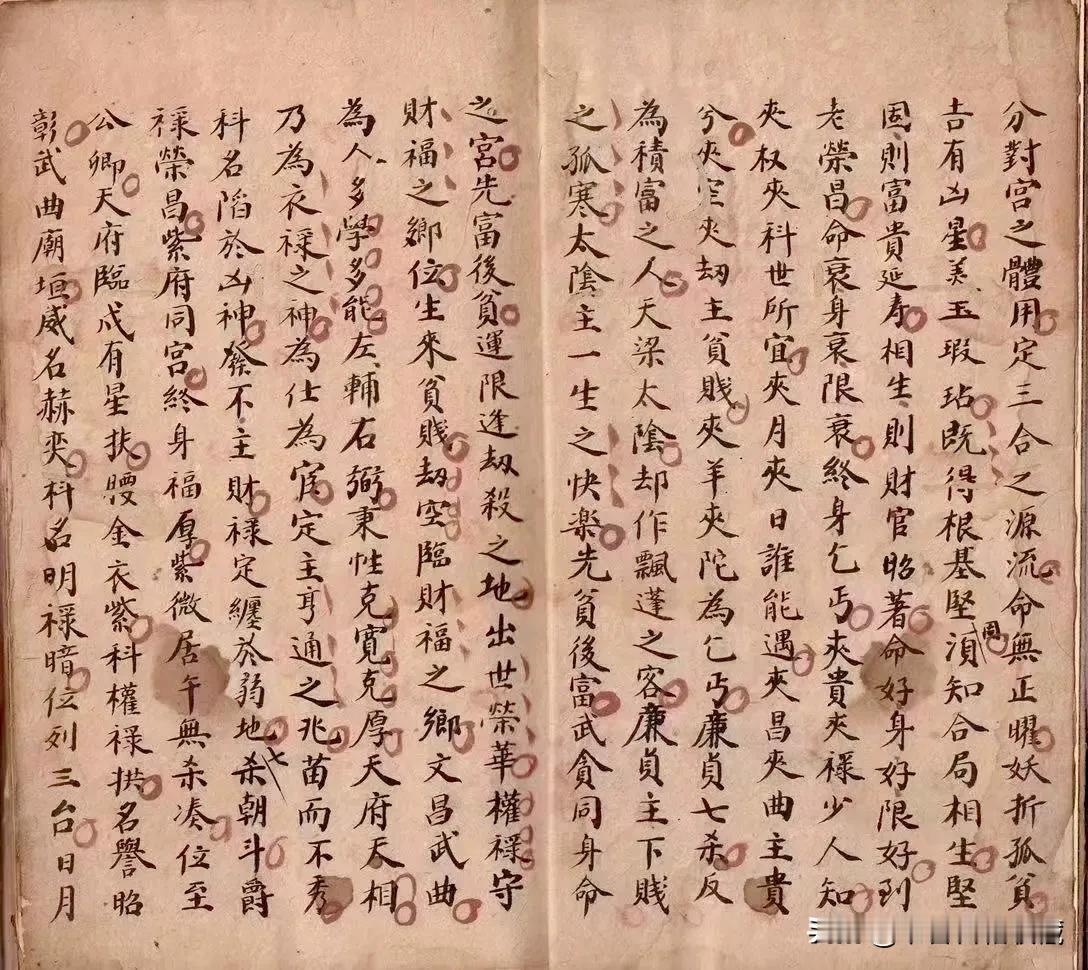 分對宮之體用定三合之源流命無正曜妖折孤貧
吉有凶星美玉瑕玷既得根基堅湏知合局相生堅
固
固則富貴延寿相生則財官昭著命好身好限好到
老榮昌命衰身衰限衰終身乞丐夾貴夾禄少人知
夾权夾科世所宜夾月夾日誰能遇夾昌夾曲主貴
兮夾空夾劫主貧賎夾羊夾陀為乞丐廉貞七杀反
為積富之人天梁太陰却作飄蓬之客廉貞主下賎
之孤寒太陰主一生之快楽先貧後富武貪同身命
之宮先富後貧運限逢劫殺之地出世榮華權禄守
財福之鄉位生來貧賎劫空臨財福之鄉文昌武曲
為人多學多能左輔右弼秉性克寬克厚天府天相
乃為衣禄之神為仕為宦定主亨通之兆苗而不秀
科名陷於凶神發不主財禄定纏於弱地七杀朝斗爵
禄榮昌紫府同宮終身福厚紫微居午無杀凑位至
公卿天府臨戌有星扶腰金衣紫科權禄拱名譽昭
彰武曲廟垣威名赫奕科名明禄暗位列三台日月